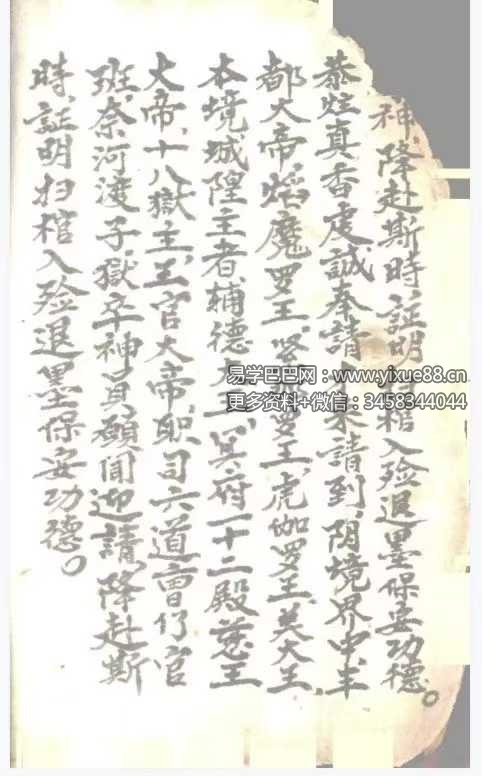 神,降赴斯時,証明扫棺入殓退墨保安功德。
恭炷真香虔誠奉請 請到,阴境界中,丰
都大帝,焰魔罗王, 罗王,虎伽罗王,美大王,
本境城隍主者,辅德 王,冥府一十二殿慈王
大帝,十八獄主,王官大帝,职司六道曹行官
班,奈河渡子,獄卒神員,願聞迎請,降赴斯
時,証明扫棺入殓退墨保安功德。
易学巴巴网:www.yixue88.cn
更多资料+微信:3458344044